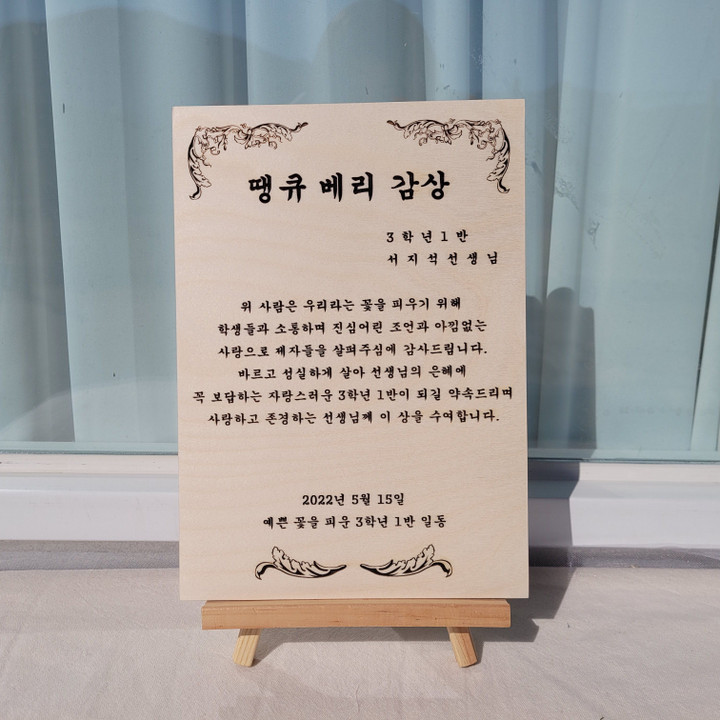 땡큐 베리 감상
3학년1반
서지석선생님
위 사람은 우리라는 꽃을 피우기 위해
학생들과 소통하며 진심어린 조언과 아낌없는
사랑으로 제자들을 살펴주심에 감사드립니다.
바르고 성실하게 살아 선생님의 은혜에
꼭 보답하는 자랑스러운 3학년 1반이 되길 약속드리며
사랑하고 존경하는 선생님께 이 상을 수여합니다.
2022년 5월 15일
예쁜 꽃을 피운 3학년 1반 일동